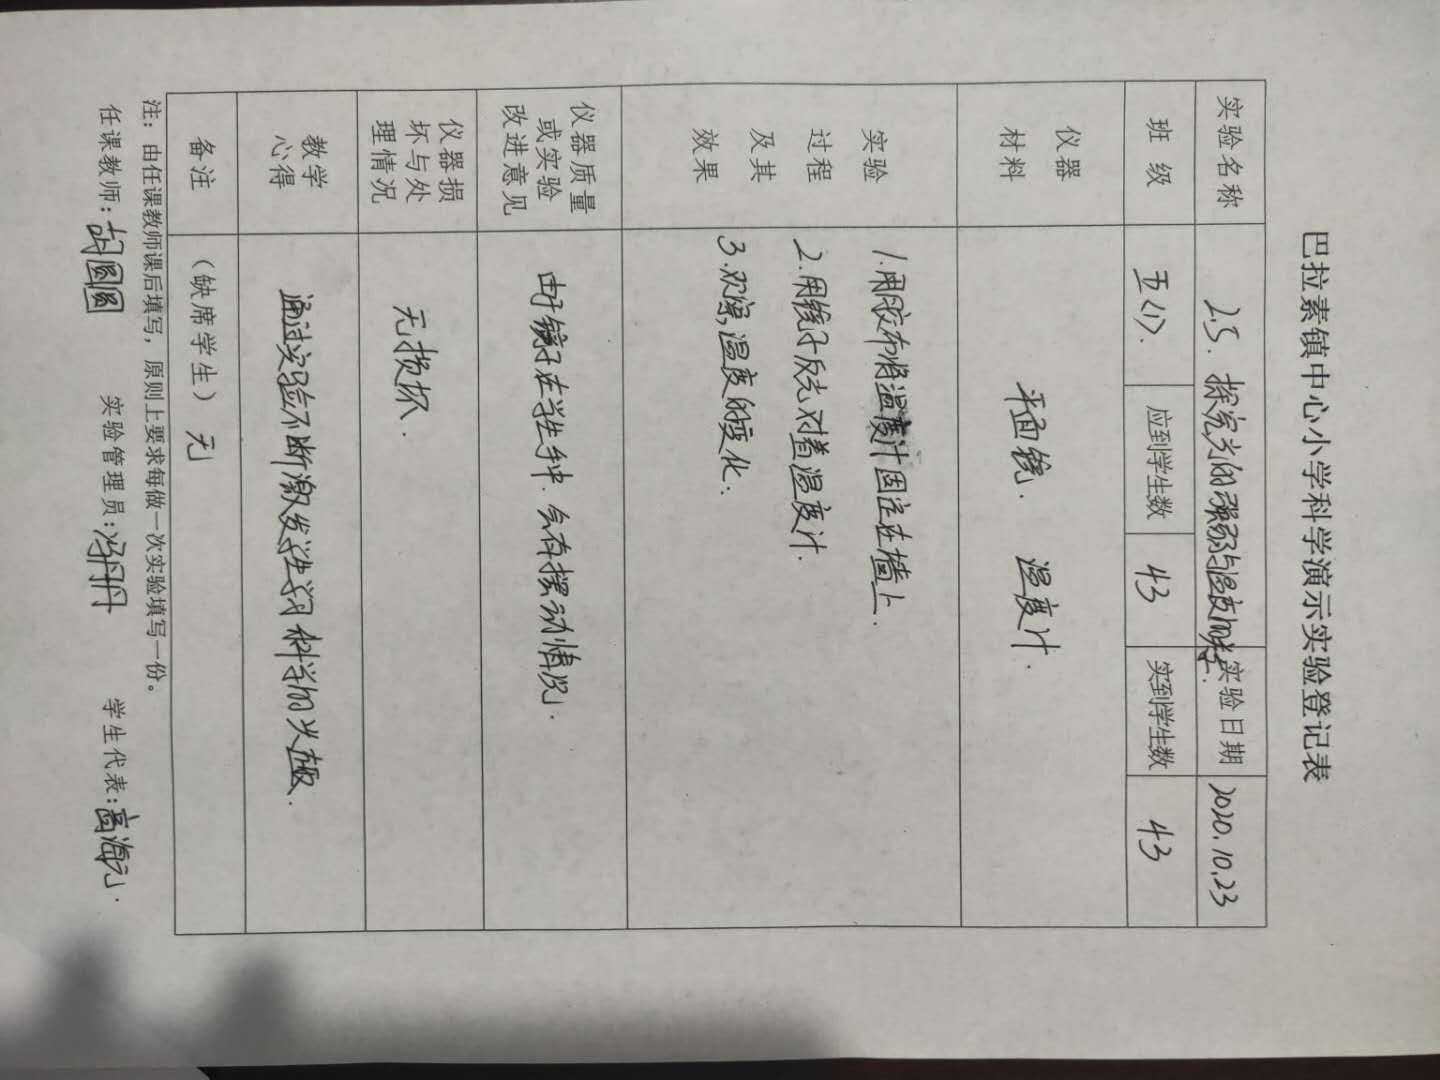 巴拉素镇中心小学科学演示实验登记表
实验名称 2.5. 探究光的强弱与温度的关系. 实验日期 2020.10.23
班 级 五〈1〉. 应到学生数 43 实到学生数 43
仪器
材料
平面镜. 温度计.
实验
过程
及其
效果
1.用胶布将温度计固定在墙上.
2.用镜子反光对着温度计.
3.观察,温度的变化.
仪器质量
或实验
改进意见
由于镜子在学生手中.会有摆动情况.
仪器损
坏与处
理情况
无损坏.
教学
心得
通过实验不断激发学生学习科学的兴趣.
备注
（缺席学生） 无
注：由任课教师课后填写，原则上要求每做一次实验填写一份。
任课教师：胡圆圆 实验管理员：冯丹丹 学生代表：高海元.